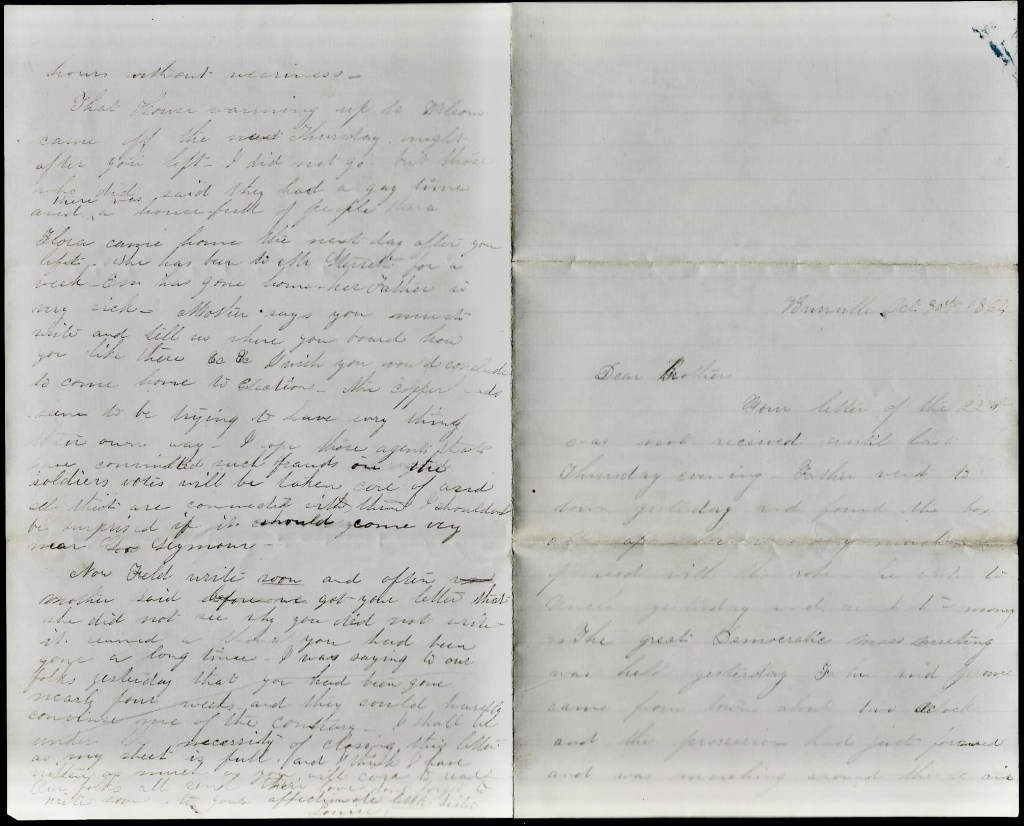 hours without weariness -
That House warming up to
came off the next Thursday night
after you left - I did not go but those
who did said they had a gay time
and there was a house full of people
Flora came home the next day after you
left. She has been to Mr for a
week - Em has gone home - her Father is
very sick - Mother says you must
write and tell us where you board how
you like there &c &c I wish you would conclude
to come home to Election - The copper heads
seem to be trying to have every thing
their own way - I hope those agents that
have committed such frauds on the
soldiers votes will be taken care of and
all that are connected with them I shouldent
be surprised if it should come very
near Gov Seymour -
Now Field write soon and often
mother said before we got your letter that
she did not see why you did not write -
it seemed a you had been
gone a long time - I was saying to our
folks yesterday that you had been gone
nearly four weeks and they could hardly
convince me of the contrary - I shall be
under the necessity of closing this letter
as my sheet is full and I think I have
written as much as you will care to read
Our folks all send their love dont forget to
write soon - to your affectionate little sister
Oct. 30th 1864
Dear Brother
Your letter of the 22d
was not received until last
Thursday evening. Father went to
down yesterday and found the box
very much
pleased with the he went to
yesterday and sent the money
The great Democratic mass meeting
was held yesterday and Jerome
came from town about two oclock
and the procession had just formed
and was marching around the square